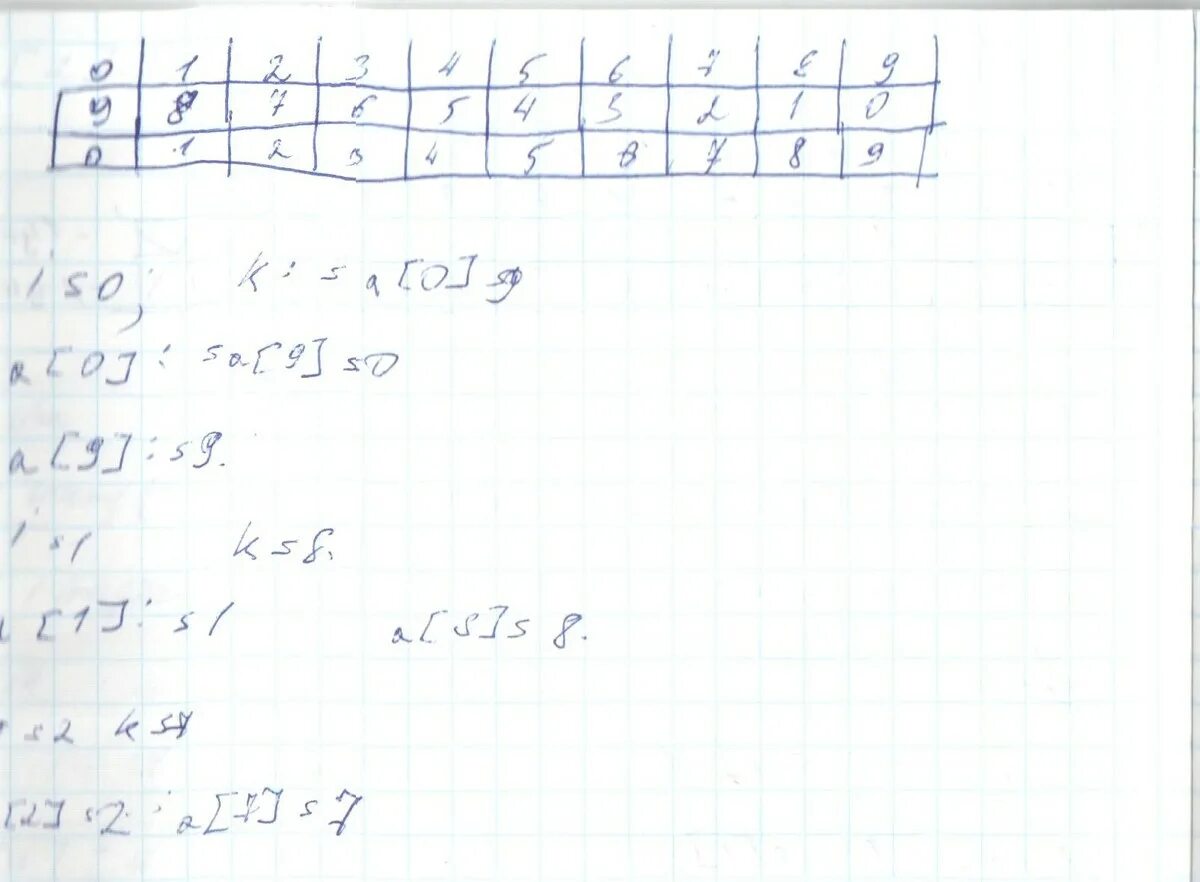 0 1 2 3 4 5 6 7 8 9
9 8 7 6 5 4 3 2 1 0
0 1 2 3 4 5 6 7 8 9
i = 0; k := a[0] = 9
a[0] := a[9] = 0
a[9] := 9.
i = 1 k = 8.
a[1] := 1 a[8] = 8.
= 2 k = 7
[2] = 2 : a[7] = 7